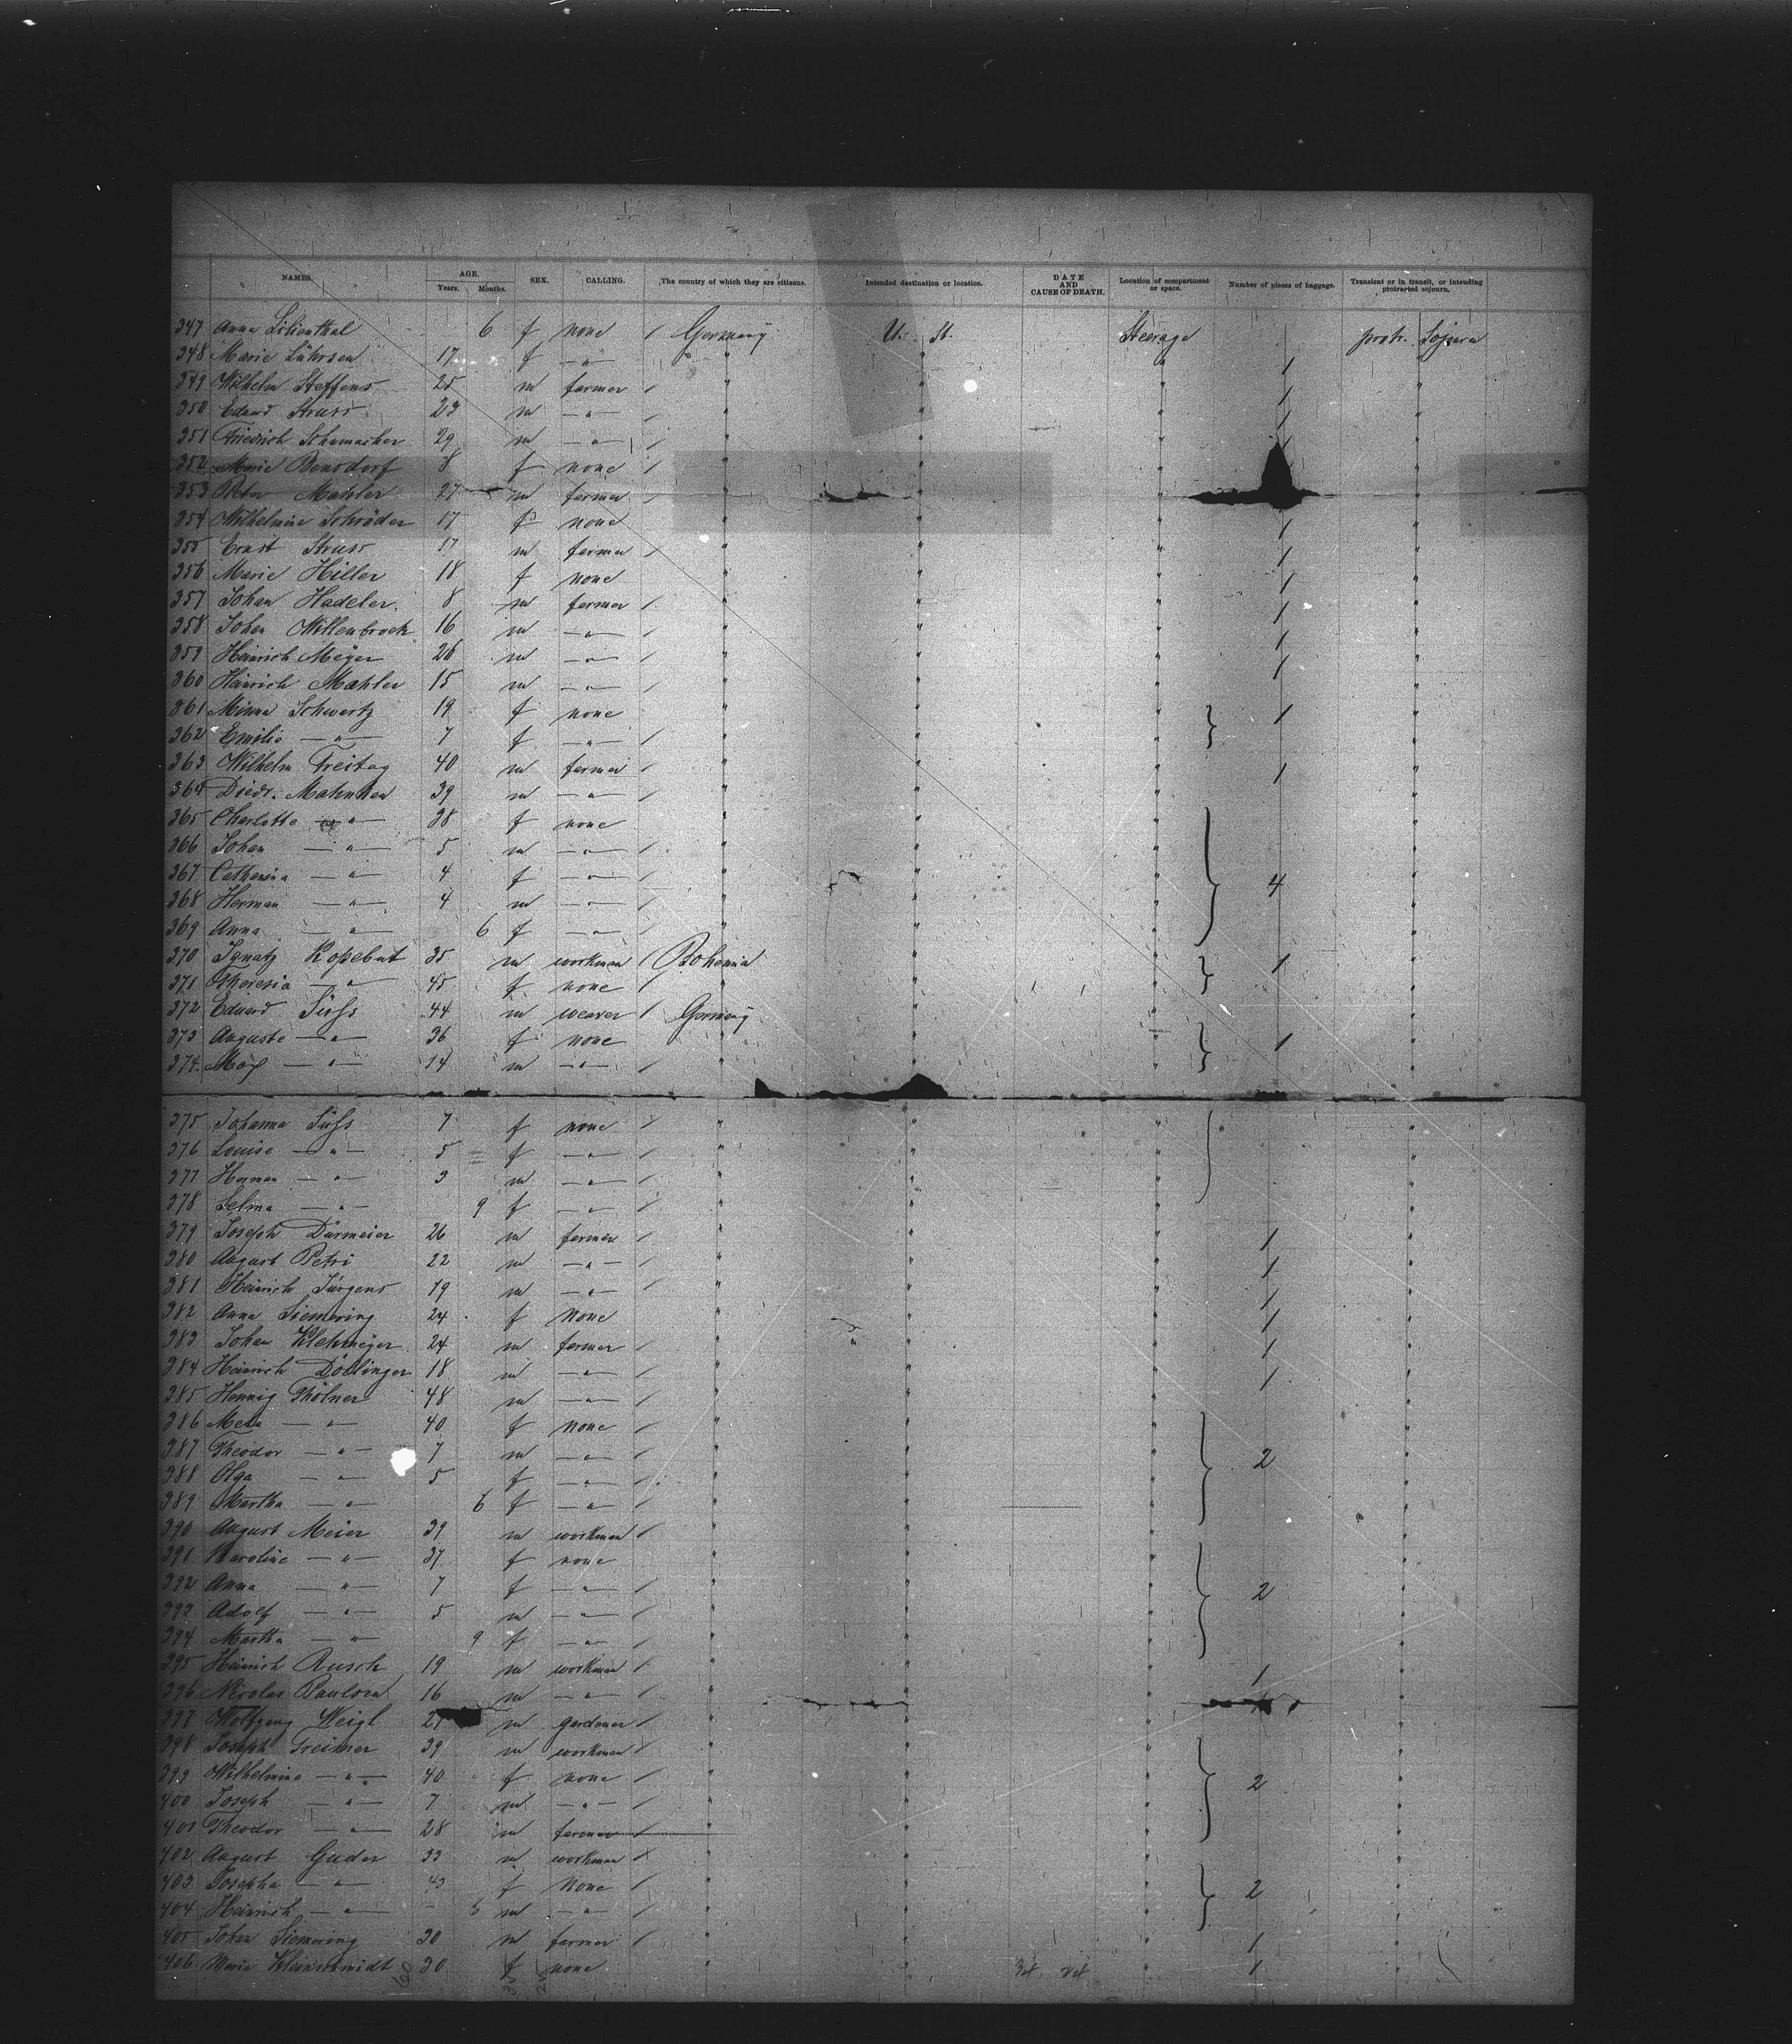 NAMES. AGE. Years. Months. SEX. CALLING. The country of which they are citizens. Intended destination or location. DATE AND CAUSE OF DEATH. Location of compartment or space. Number of pieces of baggage. Transient or in transit, or intending protracted sojourn.
347 Anna Lilienthal 6 f none / Germany U. St. Steerage protr. Sojourn
348 Marie Lührsen 17 f —"— " " " 1 "
349 Wilhelm Steffens 25 m farmer / " " " 1 "
350 Eduard Struss 23 m —"— / " " " 1 "
351 Friedrich Schumacher 29 m —"— / " " " "
352 Marie Bensdorf 8 f none / " " " "
353 Peter Mahler 27 m farmer / " " " "
354 Wilhelmine Schröder 17 f none " " " 1 "
355 Ernst Struss 17 m farmer / " " " 1 "
356 Marie Hiller 18 f none " " " 1 "
357 Johan Hadeler 8 m farmer / " " " 1 "
358 Johan Willenbrock 16 m —"— / " " " 1 "
359 Heinrich Meyer 26 m —"— / " " " 1 "
360 Heinrich Mahler 15 m —"— / " " " "
361 Minna Schwartz 19 f none " " " 1 "
362 Emilie —"— 7 f —"— / " " " "
363 Wilhelm Freitag 40 m farmer / " " " 1 "
364 Diedr. Mahnken 39 m —"— / " " " "
365 Charlotte —"— 38 f none " " " "
366 Johan —"— 5 m —"— / " " " "
367 Catharina —"— 4 f —"— / " " " 4 "
368 Herman —"— 4 m —"— / " " " "
369 Anna —"— 6 f —"— / " " " "
370 Ignatz Kopebut 35 m workman / Bohemia " " 1 "
371 Theresia —"— 45 f none / " " " "
372 Eduard Süss 44 m weaver / Germany " " "
373 Auguste —"— 36 f none " " " 1 "
374 Max —"— 14 m —"— / " " " "
375 Johanna Süss 7 f none / " " " "
376 Louise —"— 5 f —"— / " " " "
377 Herman —"— 3 m —"— / " " " "
378 Selma —"— 9 f —"— / " " " "
379 Joseph Darmeier 26 m farmer / " " " 1 "
380 August Petri 22 m —"— / " " " 1 "
381 Heinrich Jürgens 19 m —"— / " " " 1 "
382 Anna Siemering 24 f none " " " 1 "
383 Johan Klehmeyer 24 m farmer / " " " 1 "
384 Heinrich Döllinger 18 m —"— / " " " 1 "
385 Hennig Thölner 48 m —"— / " " " "
386 Meta —"— 40 f none / " " " "
387 Theodor —"— 7 m —"— / " " " 2 "
388 Olga —"— 5 f —"— / " " " "
389 Martha —"— 6 f —"— / " " " "
390 August Meier 39 m workman / " " " "
391 Karoline —"— 37 f none " " " "
392 Anna —"— 7 f —"— / " " " 2 "
393 Adolf —"— 5 m —"— / " " " "
394 Martha —"— 9 f —"— / " " " "
395 Heinrich Rusch 19 m workman / " " " 1 "
396 Nicolas Paulsen 16 m —"— / " " " "
397 Wolfgang Weigl 27 m gardener / " " " "
398 Joseph Greimer 39 m workman / " " " "
399 Wilhelmine —"— 40 f none / " " " 2 "
400 Joseph —"— 7 m —"— / " " " "
401 Theodor —"— 28 m farmer " " " "
402 August Guder 33 m workman / " " " "
403 Josepha —"— 43 f none / " " " 2 "
404 Heinrich —"— 6 m —"— / " " " "
405 Johan Siemering 30 m farmer / " " " 1 "
406 Marie Kleinschmidt 30 f none " " " 1 "